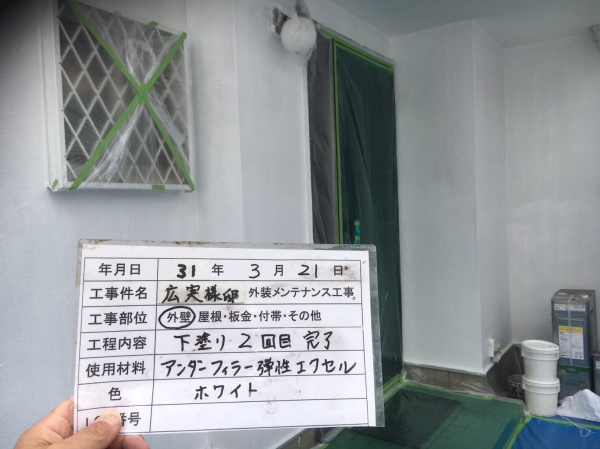 年月日 31 年 3 月 21 日
工事件名 広実様邸 外装メンテナンス工事
工事部位 外壁・屋根・板金・付帯・その他
工程内容 下塗り 2回目 完了
使用材料 アンダーフィラー弾性エクセル
色 ホワイト
番号